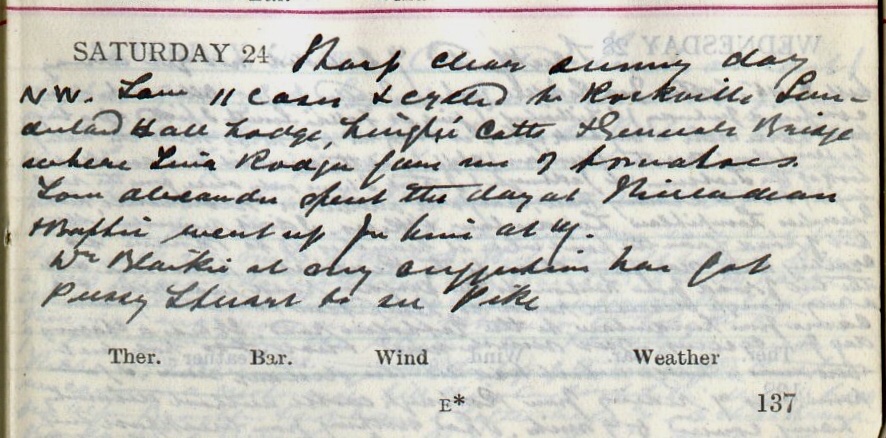 SATURDAY 24 Sharp clear sunny day
NW. Saw 11 cases & cycled to Rockville Sun-
derland Hall Lodge, Cotts & Generals Bridge
where Rodger gave me of tomatoes.
Tom Alexander spent the day at
& went up for him at
Dr Blaikie at my suggestion has got
Pussy Stuart to see Pike
Ther. Bar. Wind Weather
E* 137